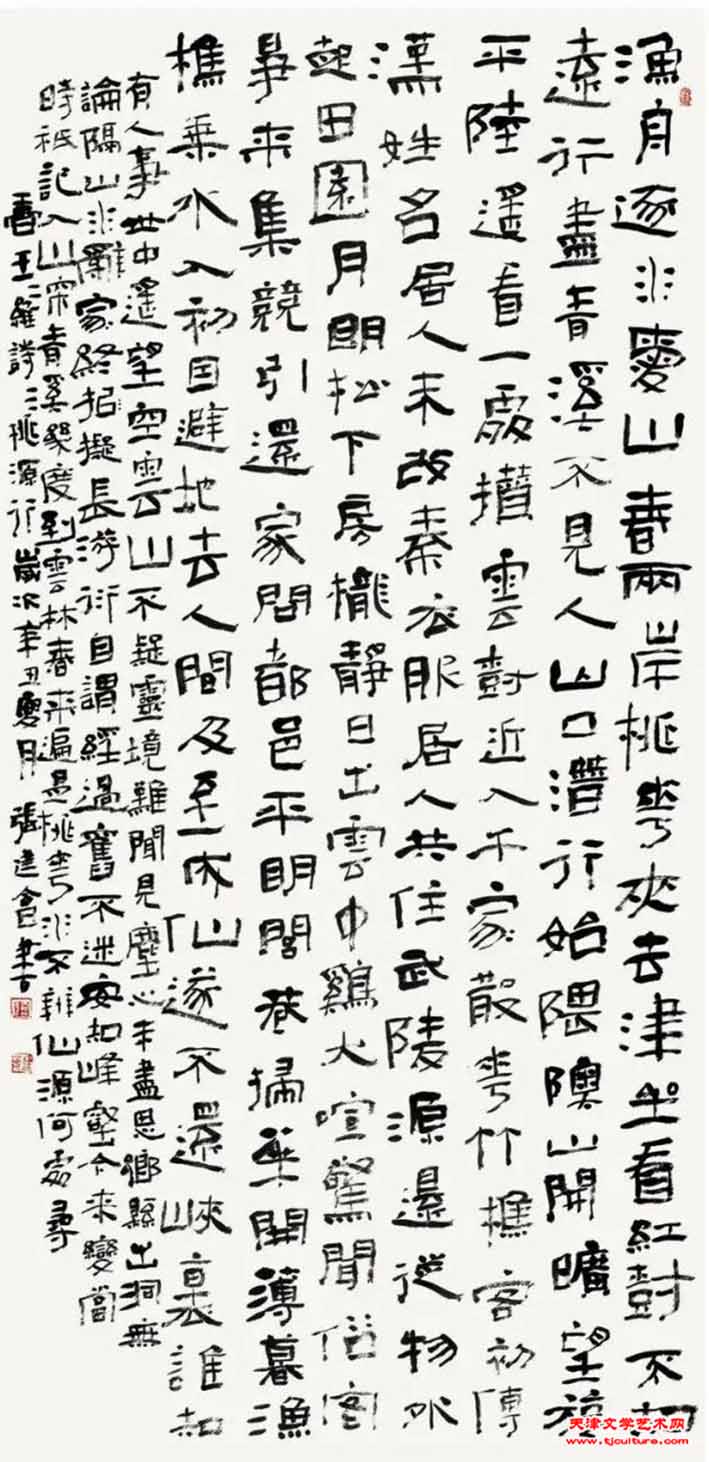 漁舟逐水愛山春兩岸桃花夾去津坐看紅樹不知
遠行盡青溪不見人山口潛行始隈隩山開曠望旋
平陸遙看一處攢雲樹近入千家散花竹樵客初傳
漢姓名居人未改秦衣服居人共住武陵源還從物外
起田園月明松下房櫳靜日出雲中雞犬喧驚聞俗客
爭來集競引還家問都邑平明閭巷掃花開薄暮漁
樵乘水入初因避地去人間及至成仙遂不還峽裏誰知
有人事世中遙望空雲山不疑靈境難聞見塵心未盡思鄉縣出洞無
論隔山水辭家終擬長游衍自謂經過舊不迷安知峰壑今來變當
時衹記入山深青溪幾度到雲林春來遍是桃花水不辨仙源何處尋
書王維詩桃源行歲次辛丑夏月張建會書
天津文学艺术网
www.tjculture.com